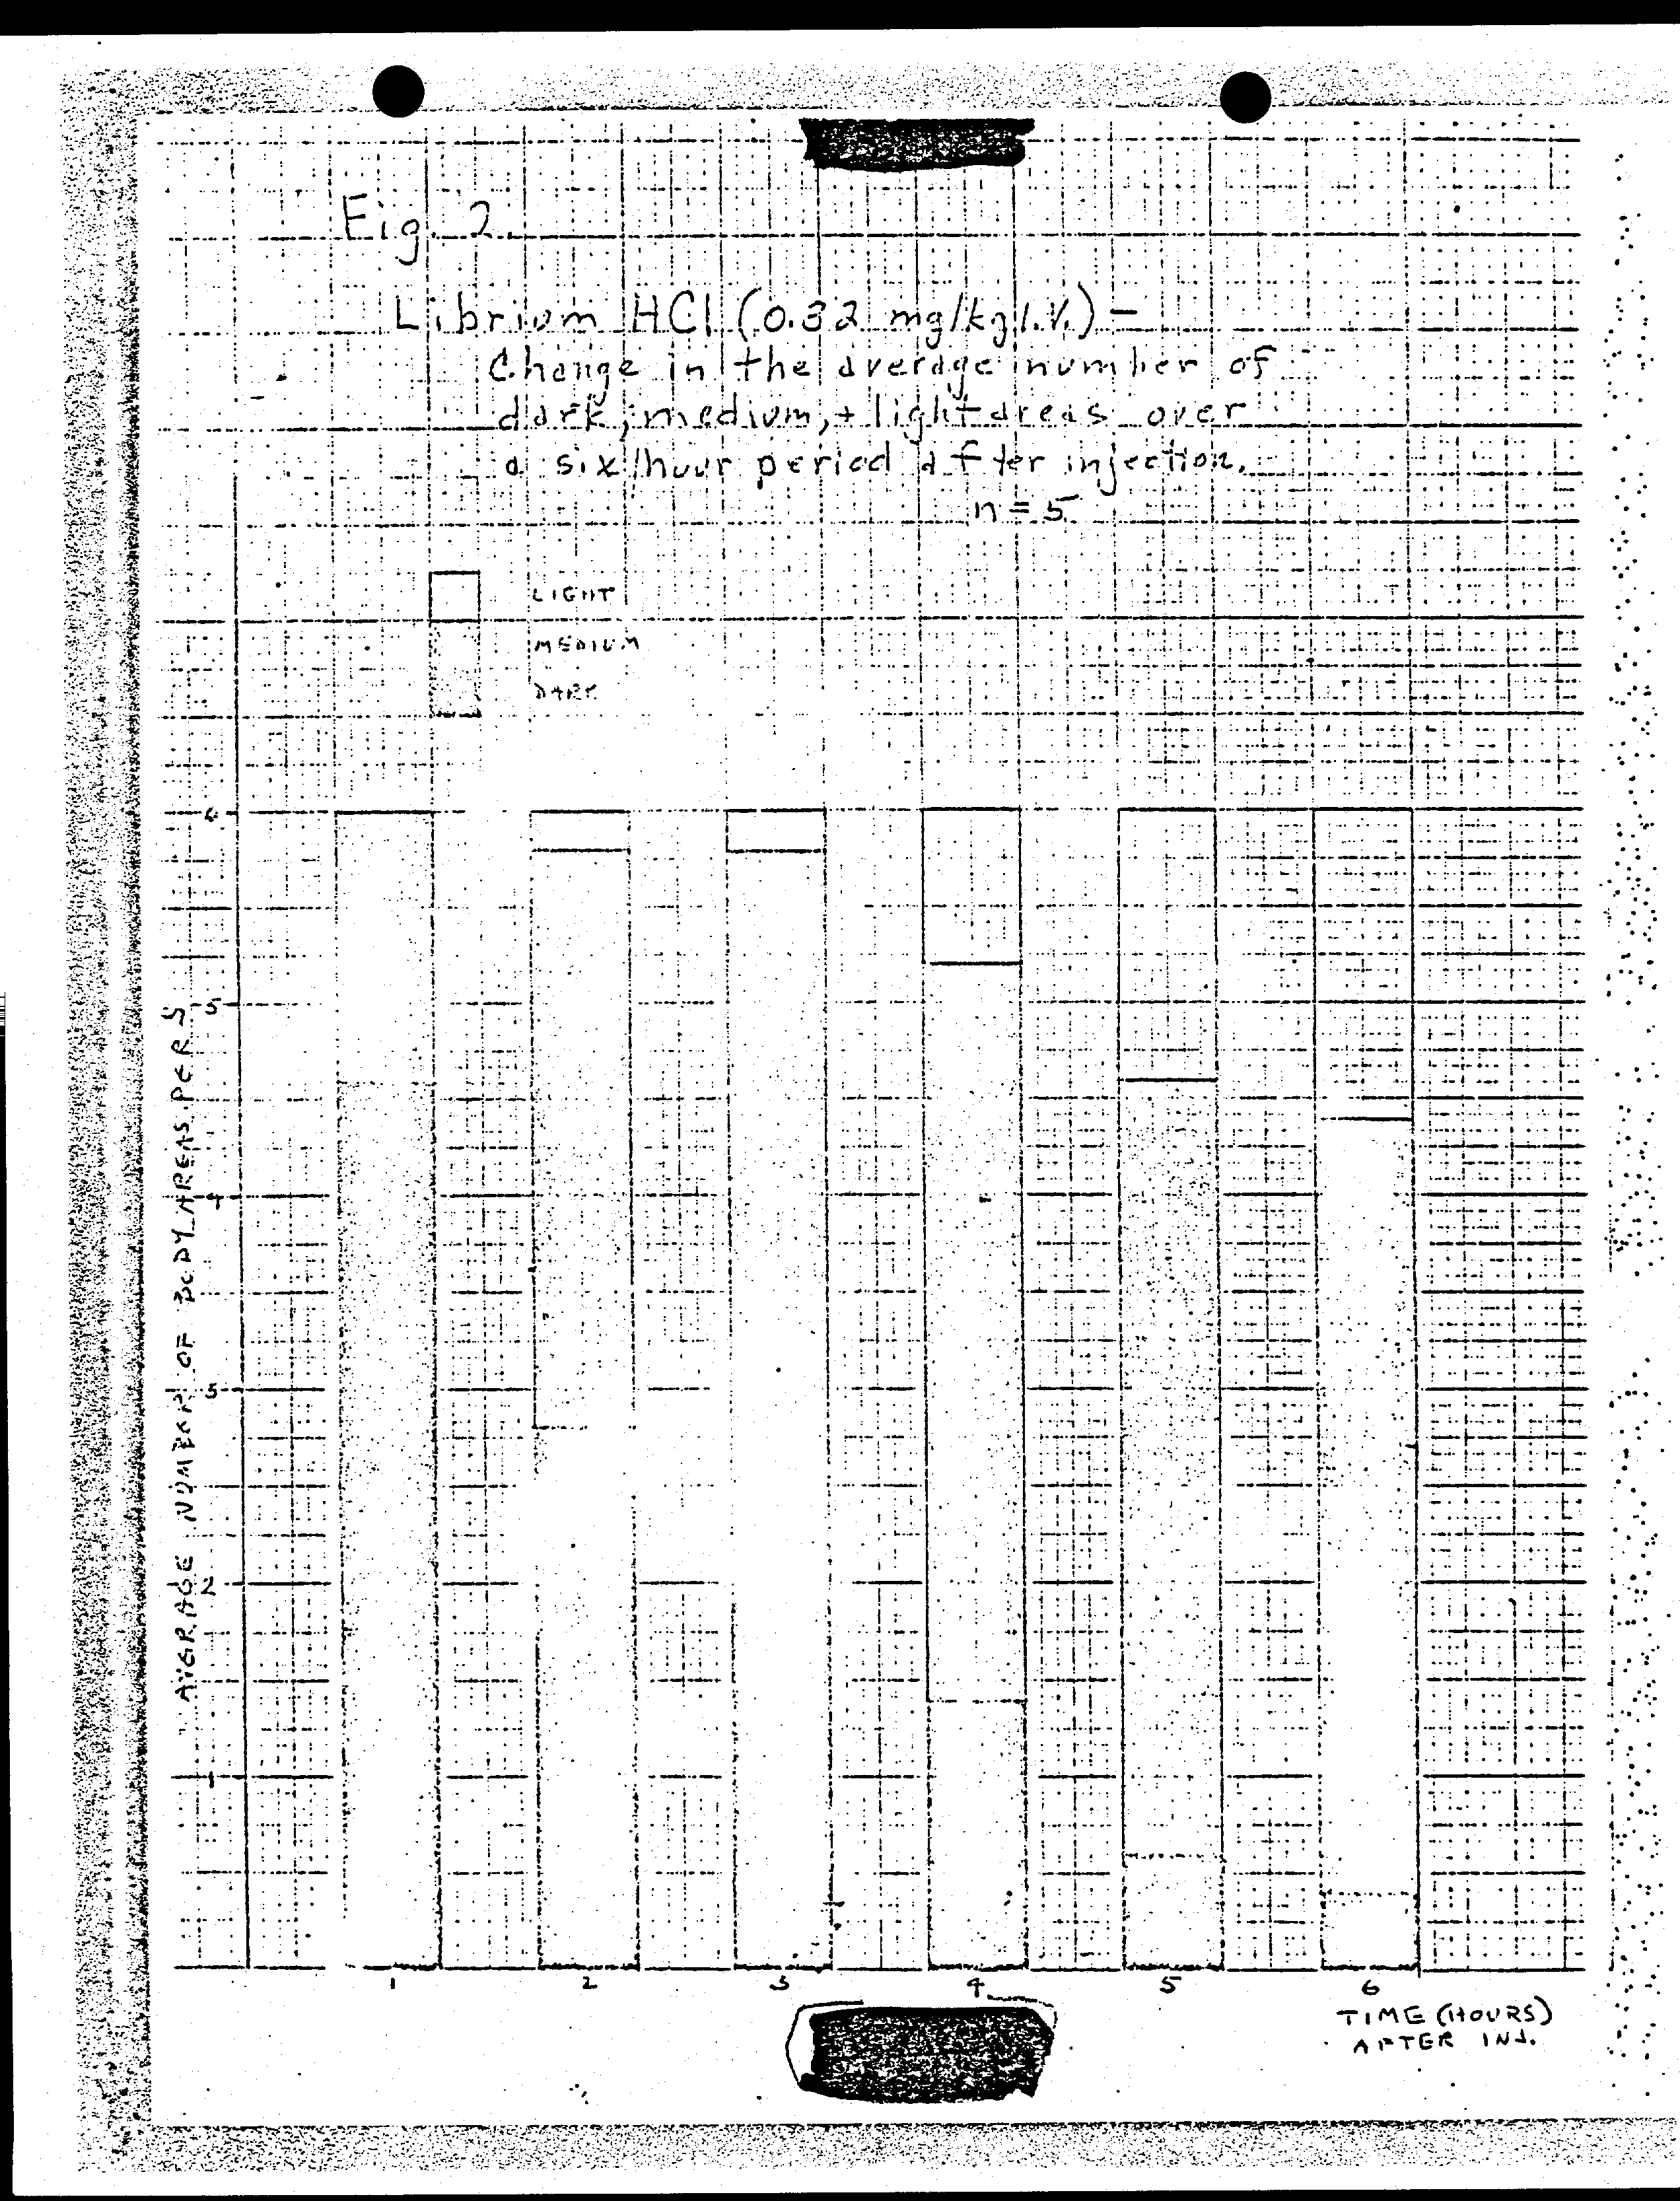 Fig. 2.
Librium HCl (0.32 mg/kg I.V.) -
Change in the average number of
dark, medium, + light areas over
a six hour period after injection.
n = 5
LIGHT
MEDIUM
DARK
6
5
4
3
2
1
AVERAGE NUMBER OF BODY AREAS PER S
1 2 3 4 5 6
TIME (HOURS)
AFTER INJ.